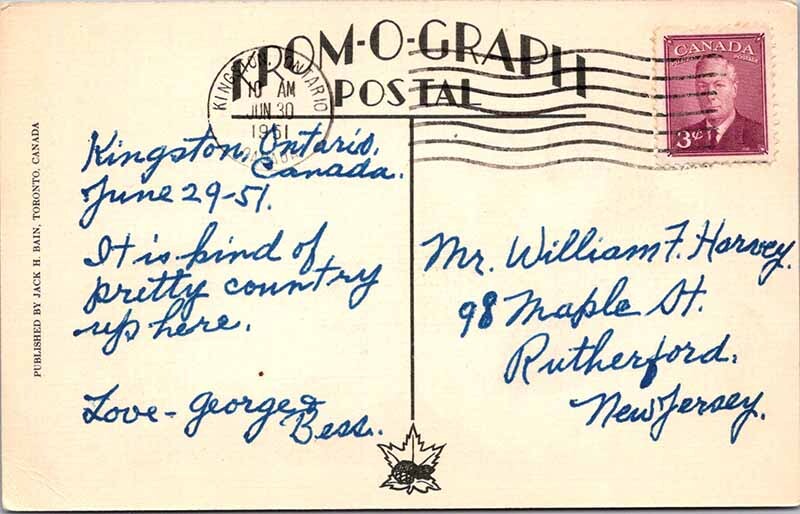 KROM-O-GRAPH
POSTAL
KINGSTON, ONTARIO
10 AM
JUN 30
1951
CANADA
CANADA
POSTES POSTAGE
3¢
PUBLISHED BY JACK H. BAIN, TORONTO, CANADA
Kingston, Ontario,
Canada.
June 29-51.
It is kind of
pretty country
up here.
Love - George &
Bess.
Mr. William F. Harvey.
98 Maple St.
Rutherford,
New Jersey.